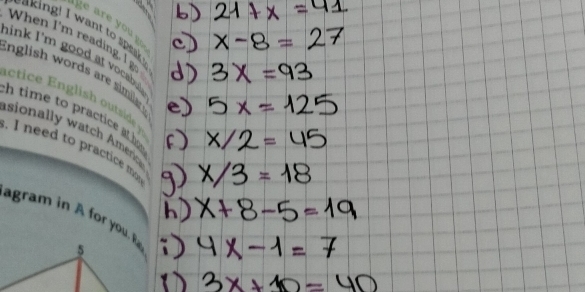 age are you
eaking! I want to speak
When I'm reading, I go
hink I'm good at vocabulary
English words are similar to
actice English outside
ch time to practice at home
asionally watch American
s. I need to practice more
iagram in A for you.
5
b) 21 + x = 41
c) x - 8 = 27
d) 3x = 93
e) 5x = 125
f) x/2 = 45
g) x/3 = 18
h) x + 8 - 5 = 19
i) 4x - 1 = 7
j) 3x + 10 = 40